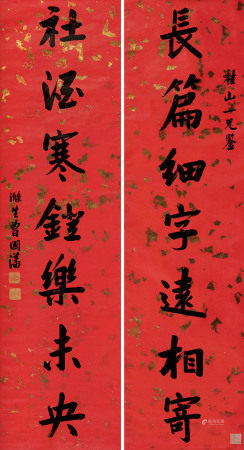 難山二兄鑒
長篇細字遠相寄
社酒寒鐙樂未央
滌生曾國藩